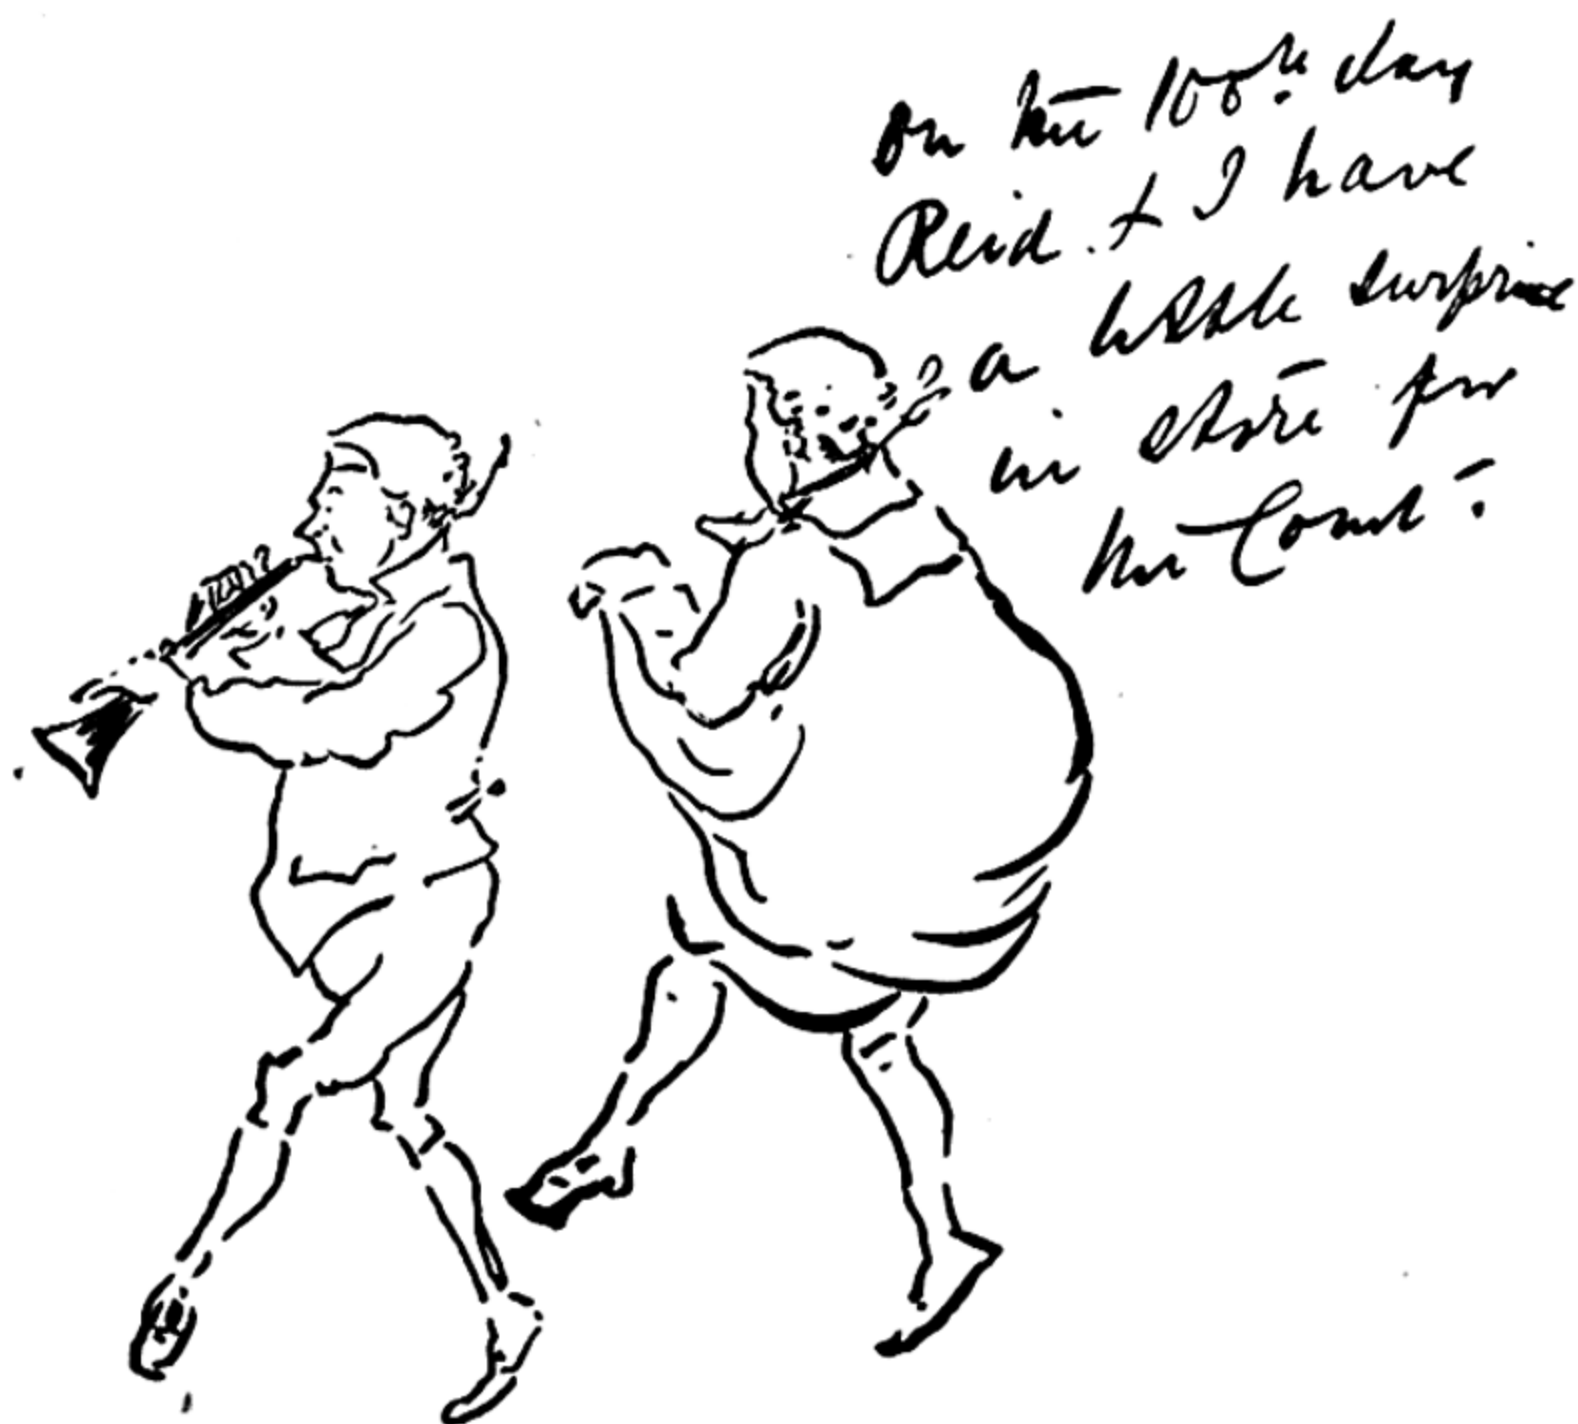 On the 100th day
Reid & I have
a little surprise
in store for
the Court.